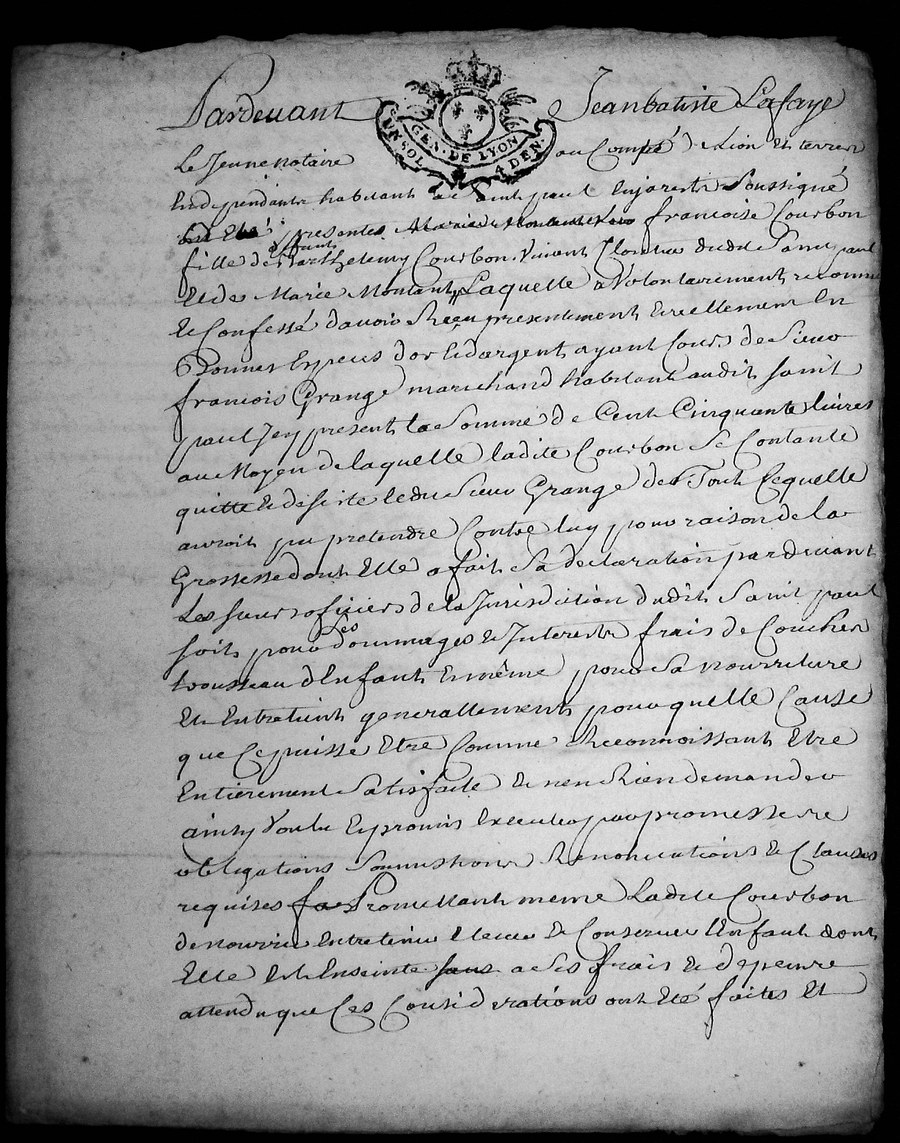 Pardevant Jean batiste Lafaye
UN SOL 4 DEN
GEN. DE LYON
Le Jeune notaire au Compté de Lion Et terres
En dependants habitant a Saint paul En jarests Soussigné
presentes francoise Courbon
deffunt
fille de Barthelemy Courbon Vivant dudit Saint paul
Et de Marie Montant, Laquelle a Volontairement reconnu
Et Confessé d'avoir Receu presentement Et reellement En
Bonnes Especes d'or Et d'argent ayant Cours de Sieur
francois Grange marchand habitant audit Saint
paul Jcy present la Somme de Cent Cinquante livres
au Moyen de laquelle ladite Courbon Se Contante
quitte Et desiste ledit Sieur Grange de Tout Cequelle
auroit pu pretendre Contre luy pour raison de la
Grossesse dont Elle a fait Sa declaration pardevant
Les Sieurs officiers de la Jurisdiction dudit Saint paul
Les
Soit pour dommages Et Interests frais de Couches
trousseau d'Enfant Et même pour Sa nourriture
Et Entretient generallement pour quelle Cause
que Ce puisse Etre Comme Reconnoissant Etre
Entierement Satisfaite Et n'en Rien demander
ainsy Voulu Et promis Executer par promesse
obligations Soumissions Renonciations Et Clauses
requises Promettant meme Ladite Courbon
de nourrir Entretenir Elever Et Conserver L'Enfant dont
Elle Est Enseinte a Ses frais Et depens
attendu que Ces Considerations ont Eté faites Et